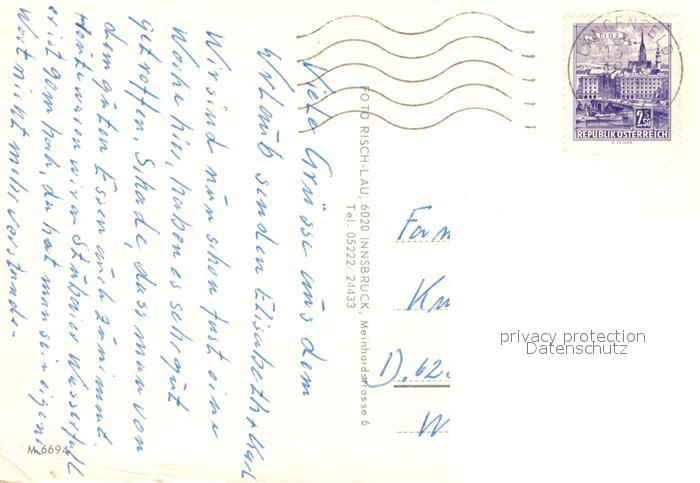 Viele Grüsse aus dem
Urlaub senden Elisabeth + Karl
Wir sind nun schon fast eine
Woche hier, haben es sehr gut
getroffen. Schade, dass man von
dem guten Essen auch zunimmt.
Heute waren wir am Stuibener Wasserfall
er ist 90 m hoch, da hat man sein eigenes
Wort nicht mehr verstanden
M 6694
FOTO RISCH-LAU, 6020 INNSBRUCK, Meinhardstrasse 6
Tel. 05222/24433
LÄNGENFELD
LINZ
2.50
REPUBLIK ÖSTERREICH
Fam
D. 62
W
privacy protection
Datenschutz